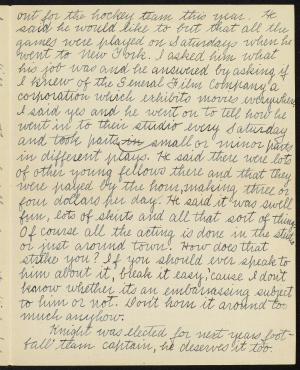 out for the hockey team this year. He
said he would like to but that all the
games were played on Saturdays when he
went to New York. I asked him what
his job was and he answered by asking if
I knew of the General Film Company a
corporation which exhibits movies everywhere
I said yes and he went on to tell how he
went in to their studio every Saturday
and took parts in small or minor parts
in different plays. He said there were lots
of other young fellows there and that they
were payed by the hour, making three or
four dollars per day. He said it was swell
fun, lots of skirts and all that sort of thing.
Of course all the acting is done in the studio
or just around town. How does that
strike you? If you should ever speak to
him about it, break it easy, 'cause I don't
know whether its an embarassing subject
to him or not. Don't horn it around to
much anyhow.
Knight was elected for next years foot-
ball team captain, he deserves it too.